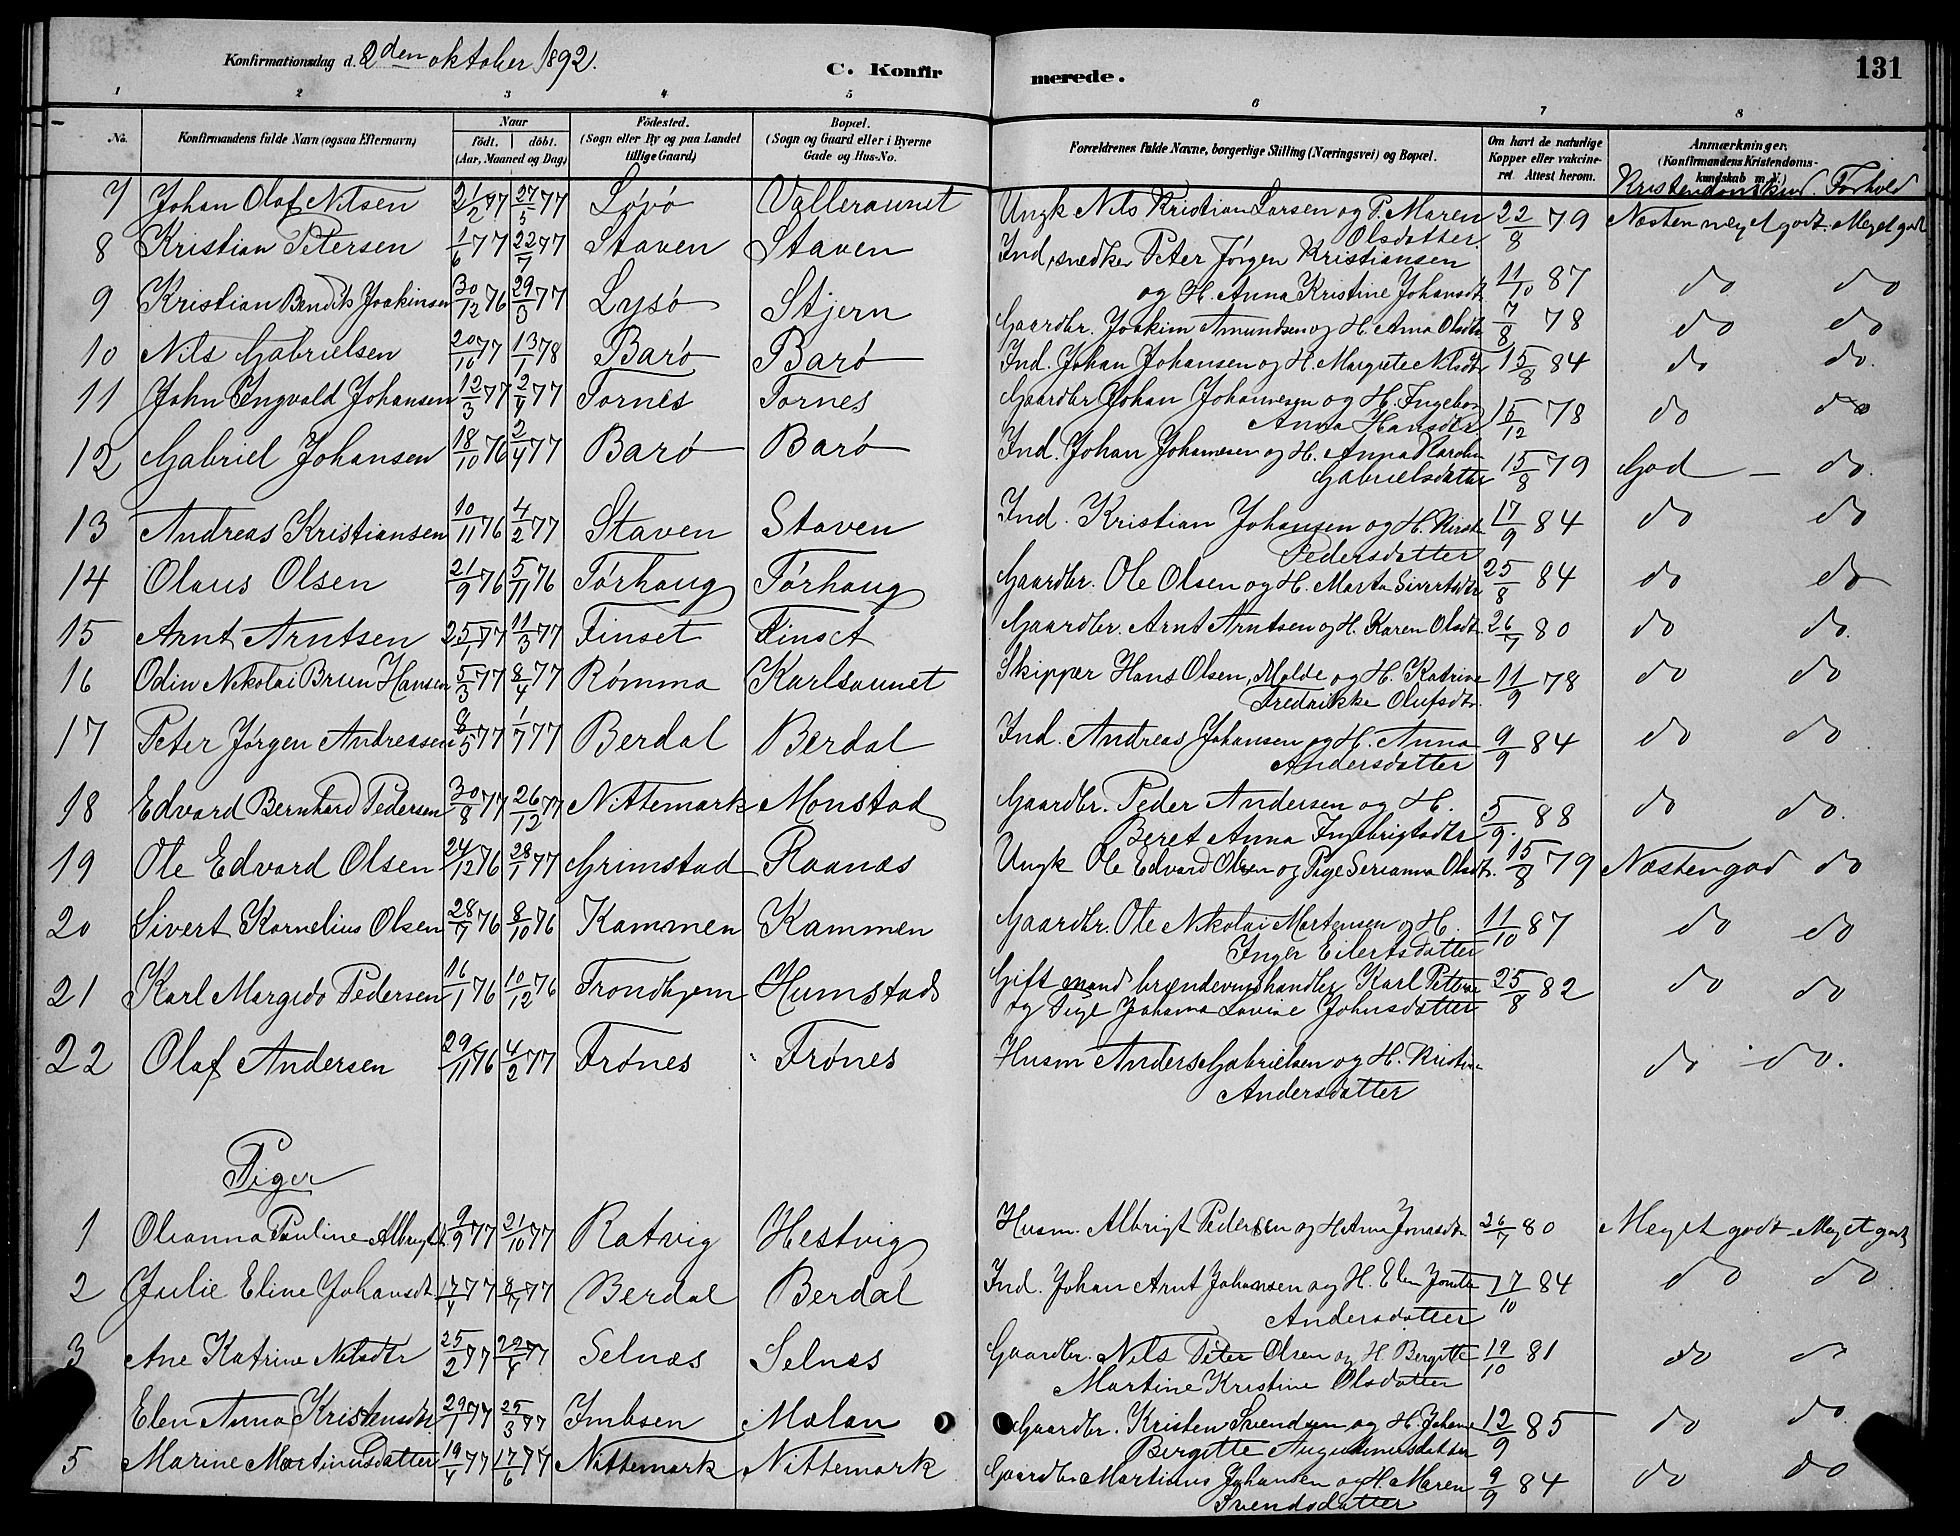 Konfirmationsdag d. 2den oktober 1892.
C. Konfirmerede.
131
1 2 3 4 5 6 7 8
No. Konfirmandens fulde Navn (ogsaa Efternavn) Naar født. døbt. (Aar, Maaned og Dag) Fødested. (Sogn eller By og paa Landet tillige Gaard) Bopæl. (Sogn og Gaard eller i Byerne Gade og Hus-No. Forældrenes fulde Navne, borgerlige Stilling (Næringsvei) og Bopæl. Om havt de naturlige Kopper eller vakcineret. Attest herom. Anmærkninger. (Konfirmandens Kristendomskundskab m. v.)
Kristendomskund. Forhold
7 Johan Olaf Nilsen 21/2 77 27/5 77 Løvø Valleraunet Ungk Nils Kristian Larsen og P. Maren Olsdatter 22/8 79 Næsten meget godt. Meget godt
8 Kristian Petersen 1/6 77 22/7 77 Staven Staven Ind, snedker Peter Jørgen Kristiansen
og H. Anna Kristine Johansdt 11/10 87 do do
9 Kristian Bendiks Joakimsen 30/12 76 29/3 77 Lysø Stjern Gaardbr. Joakim Amundsen og H. Anna Olsdtr 7/8 78 do do
10 Nils Gabrielsen 20/10 77 13/1 78 Barø Barø Ind. Johan Johansen og H. Margrete Nilsdtr 15/8 84 do do.
11 John Ingvald Johansen 12/3 77 2/4 77 Tornes Tornes Gaardbr Johan Johannesen og H. Ingebor
Anna Hansdtr 15/12 78 do do
12 Gabriel Johansen 18/10 76 2/4 77 Barø Barø Ind. Johan Johannesen og H. Anna Karolin
Gabrielsdatter 15/8 79 God - do.
13 Andreas Kristiansen 10/11 76 4/2 77 Staven Staven Ind. Kristian Johansen og H. Kirsti
Pedersdatter 17/9 84 do do
14 Olaus Olsen 21/9 76 5/11 76 Tørhaug Tørhaug Gaardbr. Ole Olsen og H. Marta Sivertsdtr 25/8 84 do do
15 Arnt Arntsen 25/1 77 11/3 77 Finset Finset Gaardbr. Arnt Arntsen og H. Karen Olsdt 26/7 80 do do.
16 Odin Nikolai Brun Hansen 5/3 77 8/4 77 Rømma Karlsaunet Skipper Hans Olsen, Molde og H. Katrine
Fredrikke Olufsdtr. 11/9 78 do do
17 Peter Jørgen Andreasen 8/5 77 1/7 77 Berdal Berdal Ind. Andreas Johansen og H. Anna
Andersdatter 9/9 84 do do
18 Edvard Bernhard Pedersen 30/8 77 26/12 77 Nittemark Monstad Gaardbr. Peder Andersen og H.
Beret Anna Ingebrigtsdtr 5/9. 88 do do.
19 Ole Edvard Olsen 24/12 76 28/1 77 Grimstad Raanæs Ungk Ole Edvard Olsen og Pige Serianna Olsdt. 15/8 79 Næsten god do
20 Sivert Kornelius Olsen 28/7 76 8/10 76 Kammen Kammen Gaardbr. Ole Nikolai Mortensen og H.
Inger Eilertsdatter 11/10 87 do do
21 Karl Margido Pedersen 16/1 76 10/12 76 Trondhjem Humstad Gift mand brændevinshandler Karl Petersen
og Pige Johanna Lovise Johnsdatter 25/8 82 do do
22 Olaf Andersen 29/11 76 4/2 77 Frønes Frønes Husm Anders Gabrielsen og H. Kristin
Andersdatter do do.
Piger
1 Olianna Pauline Albrigtdt. 9/9 77 21/10 77 Ratvig Hestvig Husm. Albrigt Pedersen og H. Ane Jonasdtr 26/7 80 Meget godt Meget godt
2 Julie Eline Johansdt. 17/4 77 8/7 77 Berdal Berdal Ind. Johan Arnt Johansen og H. Elen Jonette
Andersdatter 17/10 84 do do
3 Ane Katrine Nilsdtr 25/2 77 22/4 77 Selnæs Selnæs Gaardbr. Nils Peter Olsen og H. Bergitte
Martine Kristine Olsdatter 19/10 81 do do
Elen Anna Kristensdtr 29/1 77 25/3 77 Imbsen Malan Gaardbr. Kristen Svendsen og H. Johanna
Bergitte Augustinusdatter 12/9 85 do do
5 Marine Martinusdatter 19/4 77 17/6 77 Nittemark Nittemark Gaardbr Martinus Johansen og H. Maren
Svendsdatter 9/9 84 do do